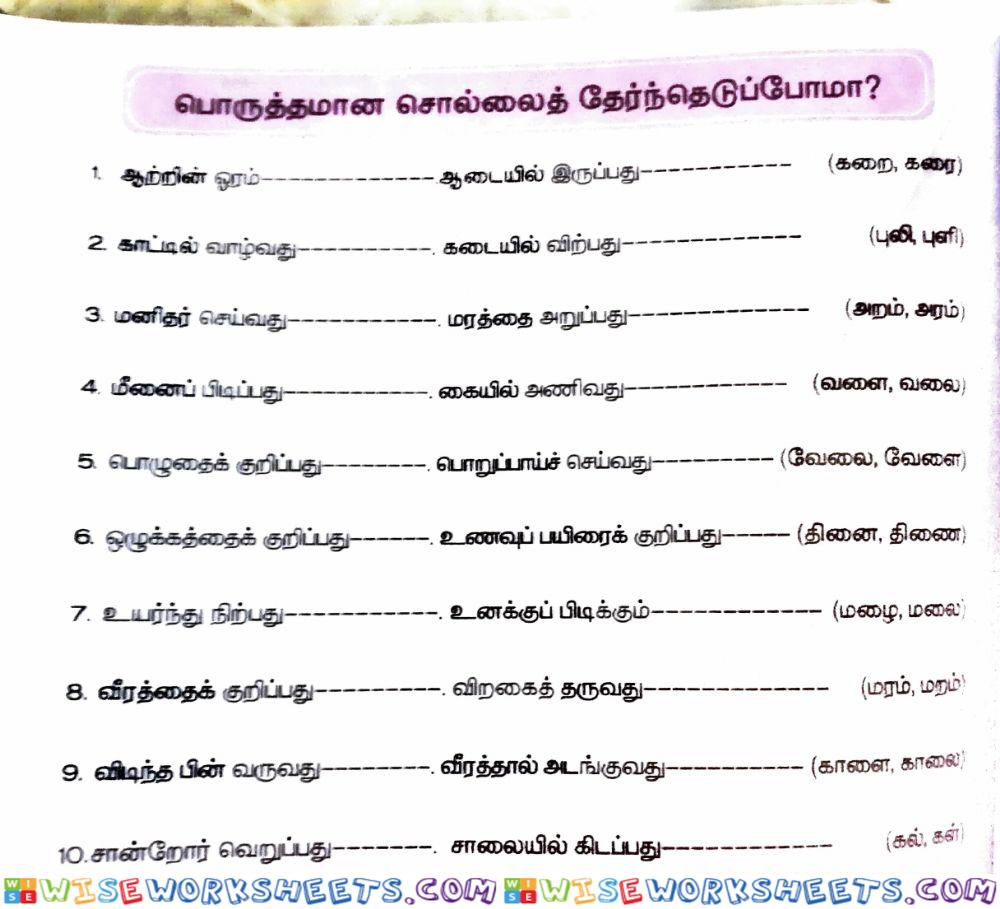 பொருத்தமான சொல்லைத் தேர்ந்தெடுப்போமா?
1. ஆற்றின் ஓரம்--------------. ஆடையில் இருப்பது------------ (கறை, கரை)
2. காட்டில் வாழ்வது-----------. கடையில் விற்பது-------------- (புலி, புளி)
3. மனிதர் செய்வது------------. மரத்தை அறுப்பது-------------- (அறம், அரம்)
4. மீனைப் பிடிப்பது------------. கையில் அணிவது------------- (வளை, வலை)
5. பொழுதைக் குறிப்பது--------. பொறுப்பாய்ச் செய்வது---------- (வேலை, வேளை)
6. ஒழுக்கத்தைக் குறிப்பது------. உணவுப் பயிரைக் குறிப்பது----- (தினை, திணை)
7. உயர்ந்து நிற்பது------------. உனக்குப் பிடிக்கும்------------- (மழை, மலை)
8. வீரத்தைக் குறிப்பது---------. விறகைத் தருவது-------------- (மரம், மறம்)
9. விடிந்த பின் வருவது--------. வீரத்தால் அடங்குவது---------- (காளை, காலை)
10.சான்றோர் வெறுப்பது-------. சாலையில் கிடப்பது------------ (கல், கள்)
WISE WISEWORKSHEETS.COM WISE WISEWORKSHEETS.COM